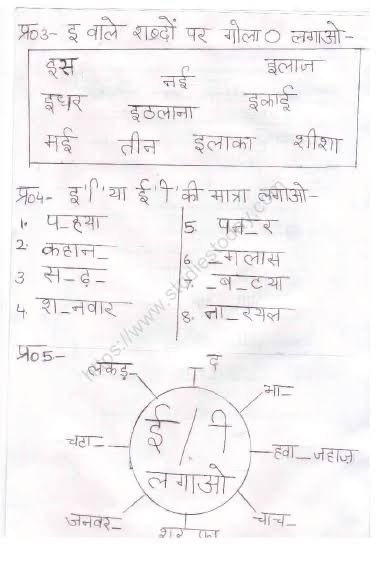 प्र०3- इ वाले शब्दों पर गोला○ लगाओ-
इस नई इलाज
इधर इठलाना इकाई
मई तीन इलाका शीशा
प्र०4- इ'ि'या ई'ी'की मात्रा लगाओ-
1. प_हया
2. कहान_
3 स_ढ़_
4. श_नवार
5. पन_र
6. _गलास
7. _ब_टया
8. ना_रयल
प्र०5:-
लकड़_
_द
भा_
चटा_
ई/ी
लगाओ
हवा_जहाज़
जनवर_
चाच_
https://www.studiestoday.com